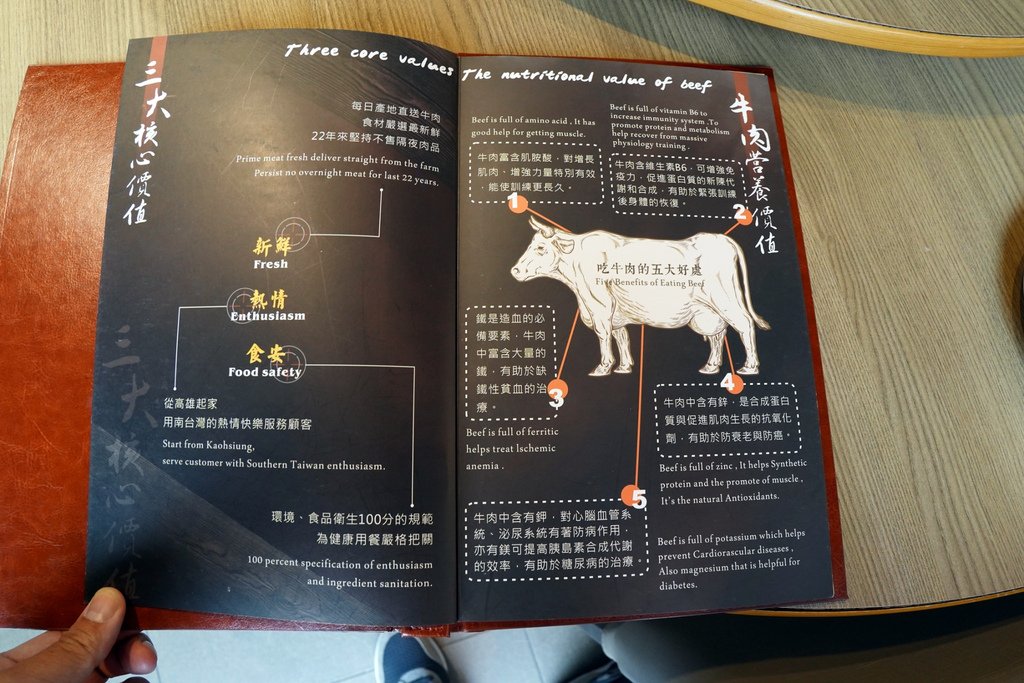 Three core values
三大核心價值
每日產地直送牛肉
食材嚴選最新鮮
22年來堅持不售隔夜肉品
Prime meat fresh deliver straight from the farm
Persist no overnight meat for last 22 years.
新鮮
Fresh
熱情
Enthusiasm
食安
Food safety
三大核心價值
從高雄起家
用南台灣的熱情快樂服務顧客
Start from Kaohsiung,
serve customer with Southern Taiwan enthusiasm.
環境、食品衛生100分的規範
為健康用餐嚴格把關
100 percent specification of enthusiasm
and ingredient sanitation.
The nutritional value of beef
牛肉營養價值
Beef is full of amino acid , It has
good help for getting muscle.
牛肉富含肌胺酸，對增長
肌肉、增強力量特別有效
，能使訓練更長久。
1
Beef is full of vitamin B6 to
increase immunity system .To
promote protein and metabolism
help recover from massive
physiology training .
牛肉含維生素B6，可增強免
疫力，促進蛋白質的新陳代
謝和合成，有助於緊張訓練
後身體的恢復。
2
吃牛肉的五大好處
Five Benefits of Eating Beef
鐵是造血的必
備要素，牛肉
中富含大量的
鐵，有助於缺
鐵性貧血的治
療。
3
Beef is full of ferritic
helps treat lschemic
anemia .
4
牛肉中含有鋅，是合成蛋白
質與促進肌肉生長的抗氧化
劑，有助於防衰老與防癌。
Beef is full of zinc , It helps Synthetic
protein and the promote of muscle ,
It's the natural Antioxidants.
5
牛肉中含有鉀，對心腦血管系
統、泌尿系統有著防病作用，
亦有鎂可提高胰島素合成代謝
的效率，有助於糖尿病的治療。
Beef is full of potassium which helps
prevent Cardiorascular diseases ,
Also magnesium that is helpful for
diabetes.